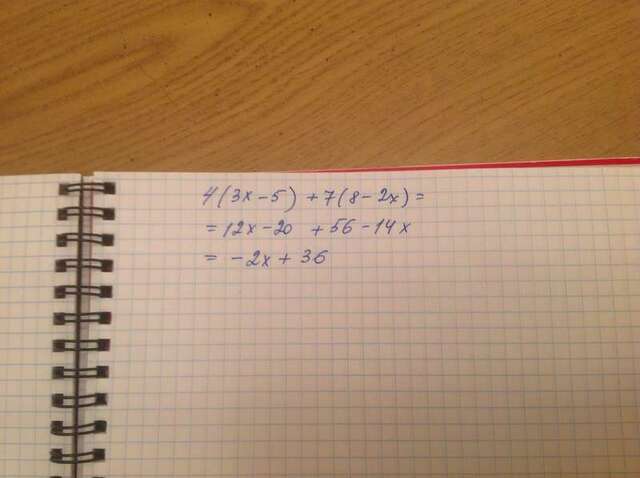 4(3x-5) +7(8-2x)=
=12x-20 +56-14x
= -2x+36